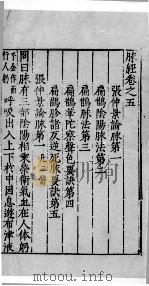 脉經卷之五
張仲景論脉第一
扁鵲陰陽脉法第二
扁鵲脉法第三
扁鵲華陀察聲色要訣第四
扁鵲診諸反逆死脉要訣第五
張仲景論脉第一
問曰脉有三部陰陽相乘榮衛氣血在人體躬
千金作而行人躬 呼吸出入上下於中因息遊布津液